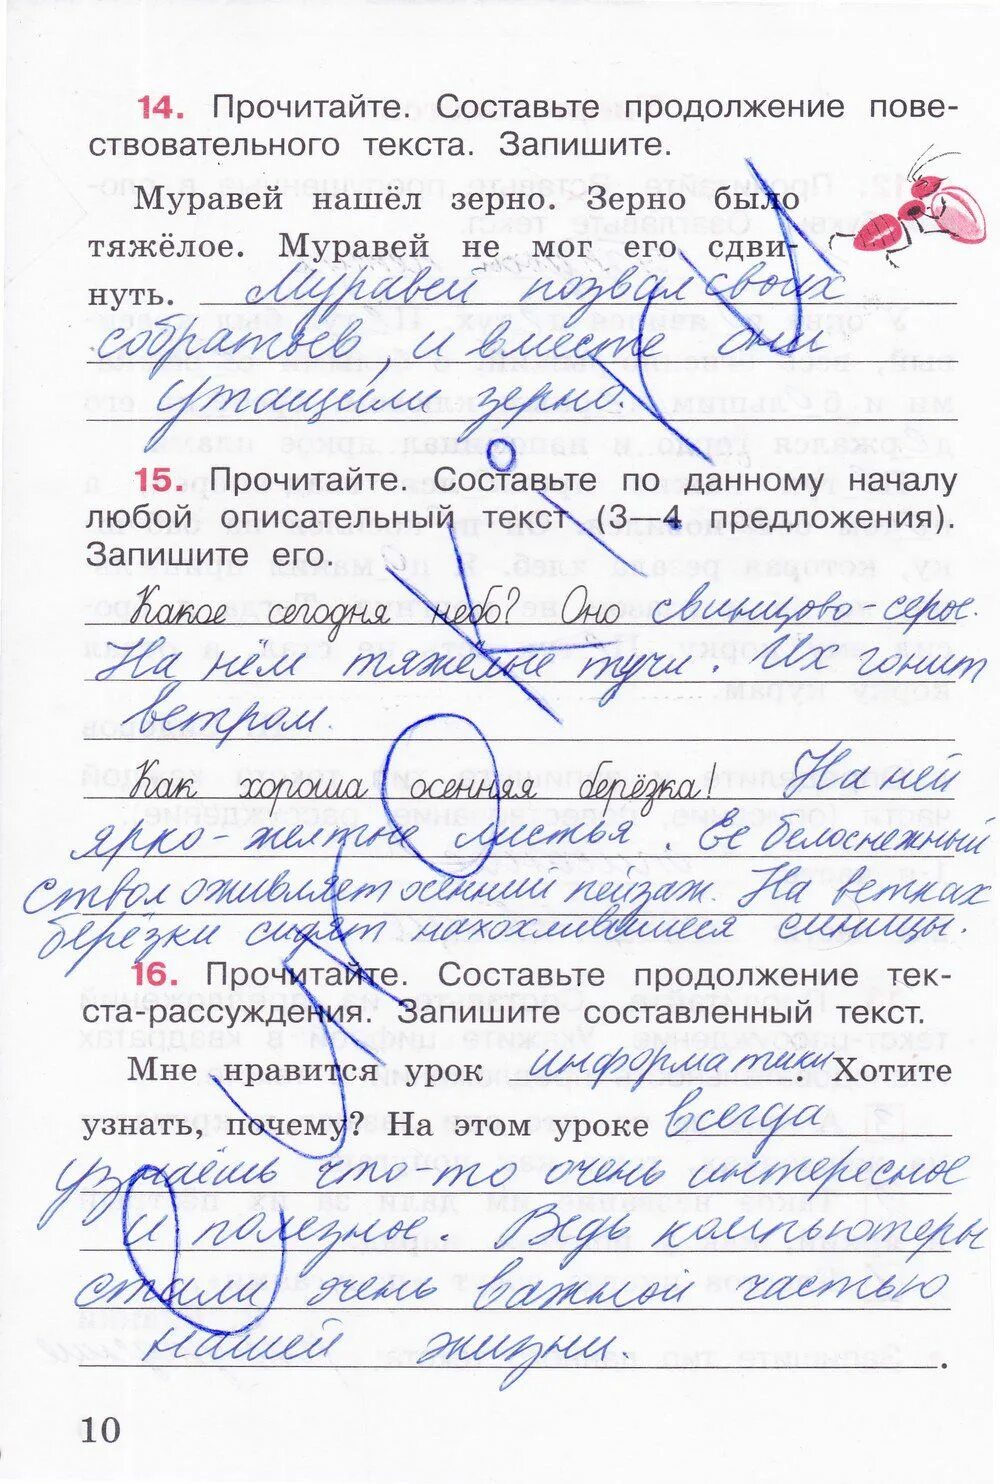 14. Прочитайте. Составьте продолжение пове-
ствовательного текста. Запишите.
Муравей нашёл зерно. Зерно было
тяжёлое. Муравей не мог его сдви-
нуть. Муравей позвал своих
собратьев, и вместе они
утащили зерно.
15. Прочитайте. Составьте по данному началу
любой описательный текст (3—4 предложения).
Запишите его.
Какое сегодня небо? Оно свинцово-серое.
На нём тяжёлые тучи. Их гонит
ветром.
Как хороша осенняя берёзка! На ней
ярко-желтые листья. Её белоснежный
ствол оживляет осенний пейзаж. На ветках
берёзки сидят нахохлившиеся синицы.
16. Прочитайте. Составьте продолжение тек-
ста-рассуждения. Запишите составленный текст.
Мне нравится урок информатики. Хотите
узнать, почему? На этом уроке всегда
узнаёшь что-то очень интересное
и полезное. Ведь компьютеры
стали очень важной частью
нашей жизни.
10